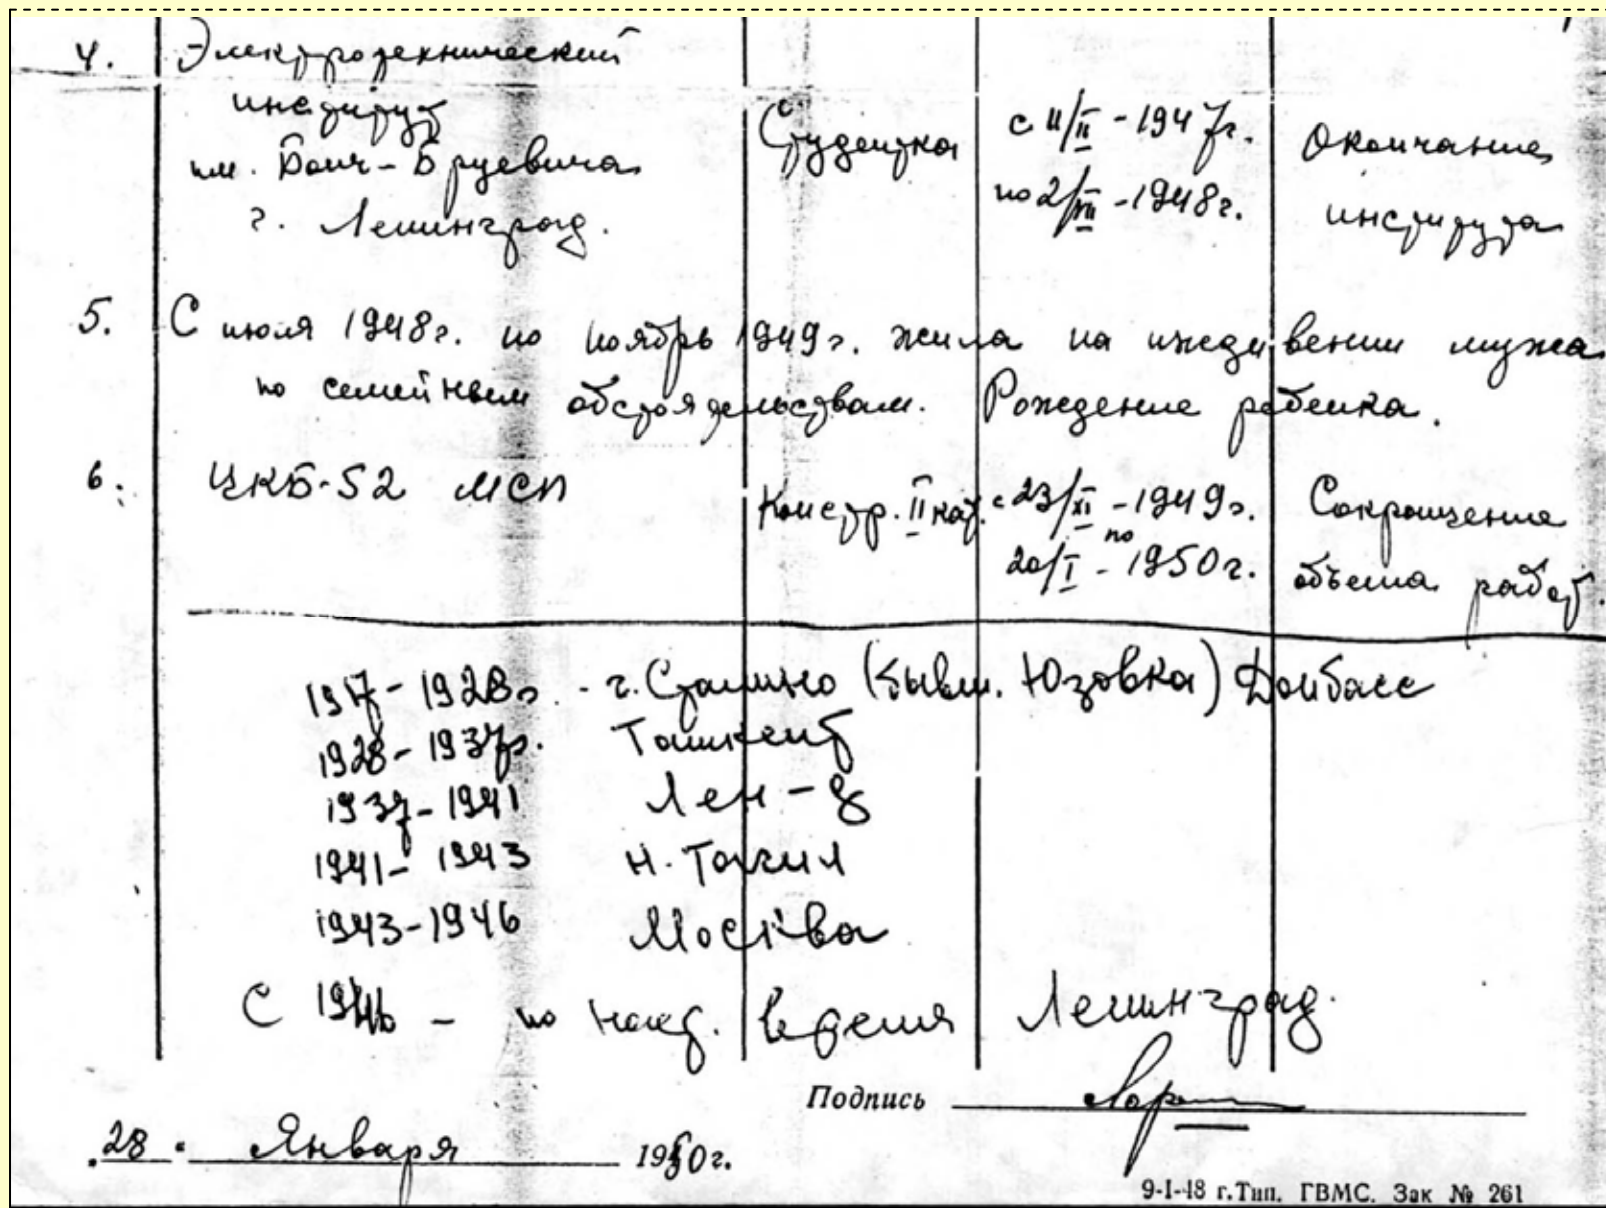 4. Электротехнический
институт
им. Бонч-Бруевича
г. Ленинград.
Студентка
с 11/II - 1947г.
по 2/VII - 1948г.
Окончание
института
5. С июля 1948г. по ноябрь 1949г. жила на иждивении мужа
по семейным обстоятельствам. Рождение ребенка.
6. ЦКБ-52 МСП
Констр. II кат.
с 23/XI - 1949г.
по
20/I - 1950г.
Сокращение
объема работ.
1917 - 1928г. - г. Сталино (бывш. Юзовка) Донбасс
1928 - 1937г. Ташкент
1937 - 1941 Лен-д
1941 - 1943 Н. Тагил
1943 - 1946 Москва
С 1946 - по наст. время Ленинград.
Подпись
„28“ Января 1950г.
9-I-48 г. Тип. ГВМС. Зак № 261